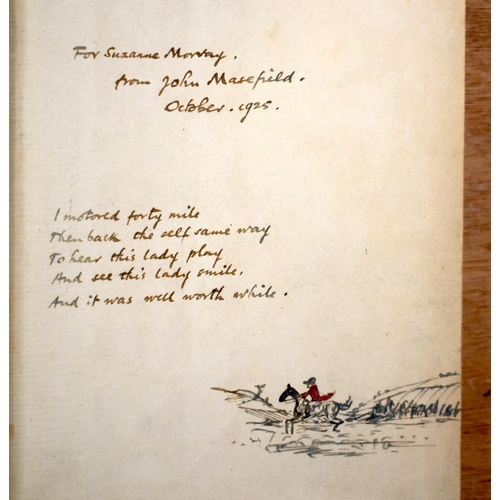 For Suzanne Morvay.
from John Masefield.
October. 1925.
I motored forty mile
Then back the self same way
To hear this lady play
And see this lady smile.
And it was well worth while.